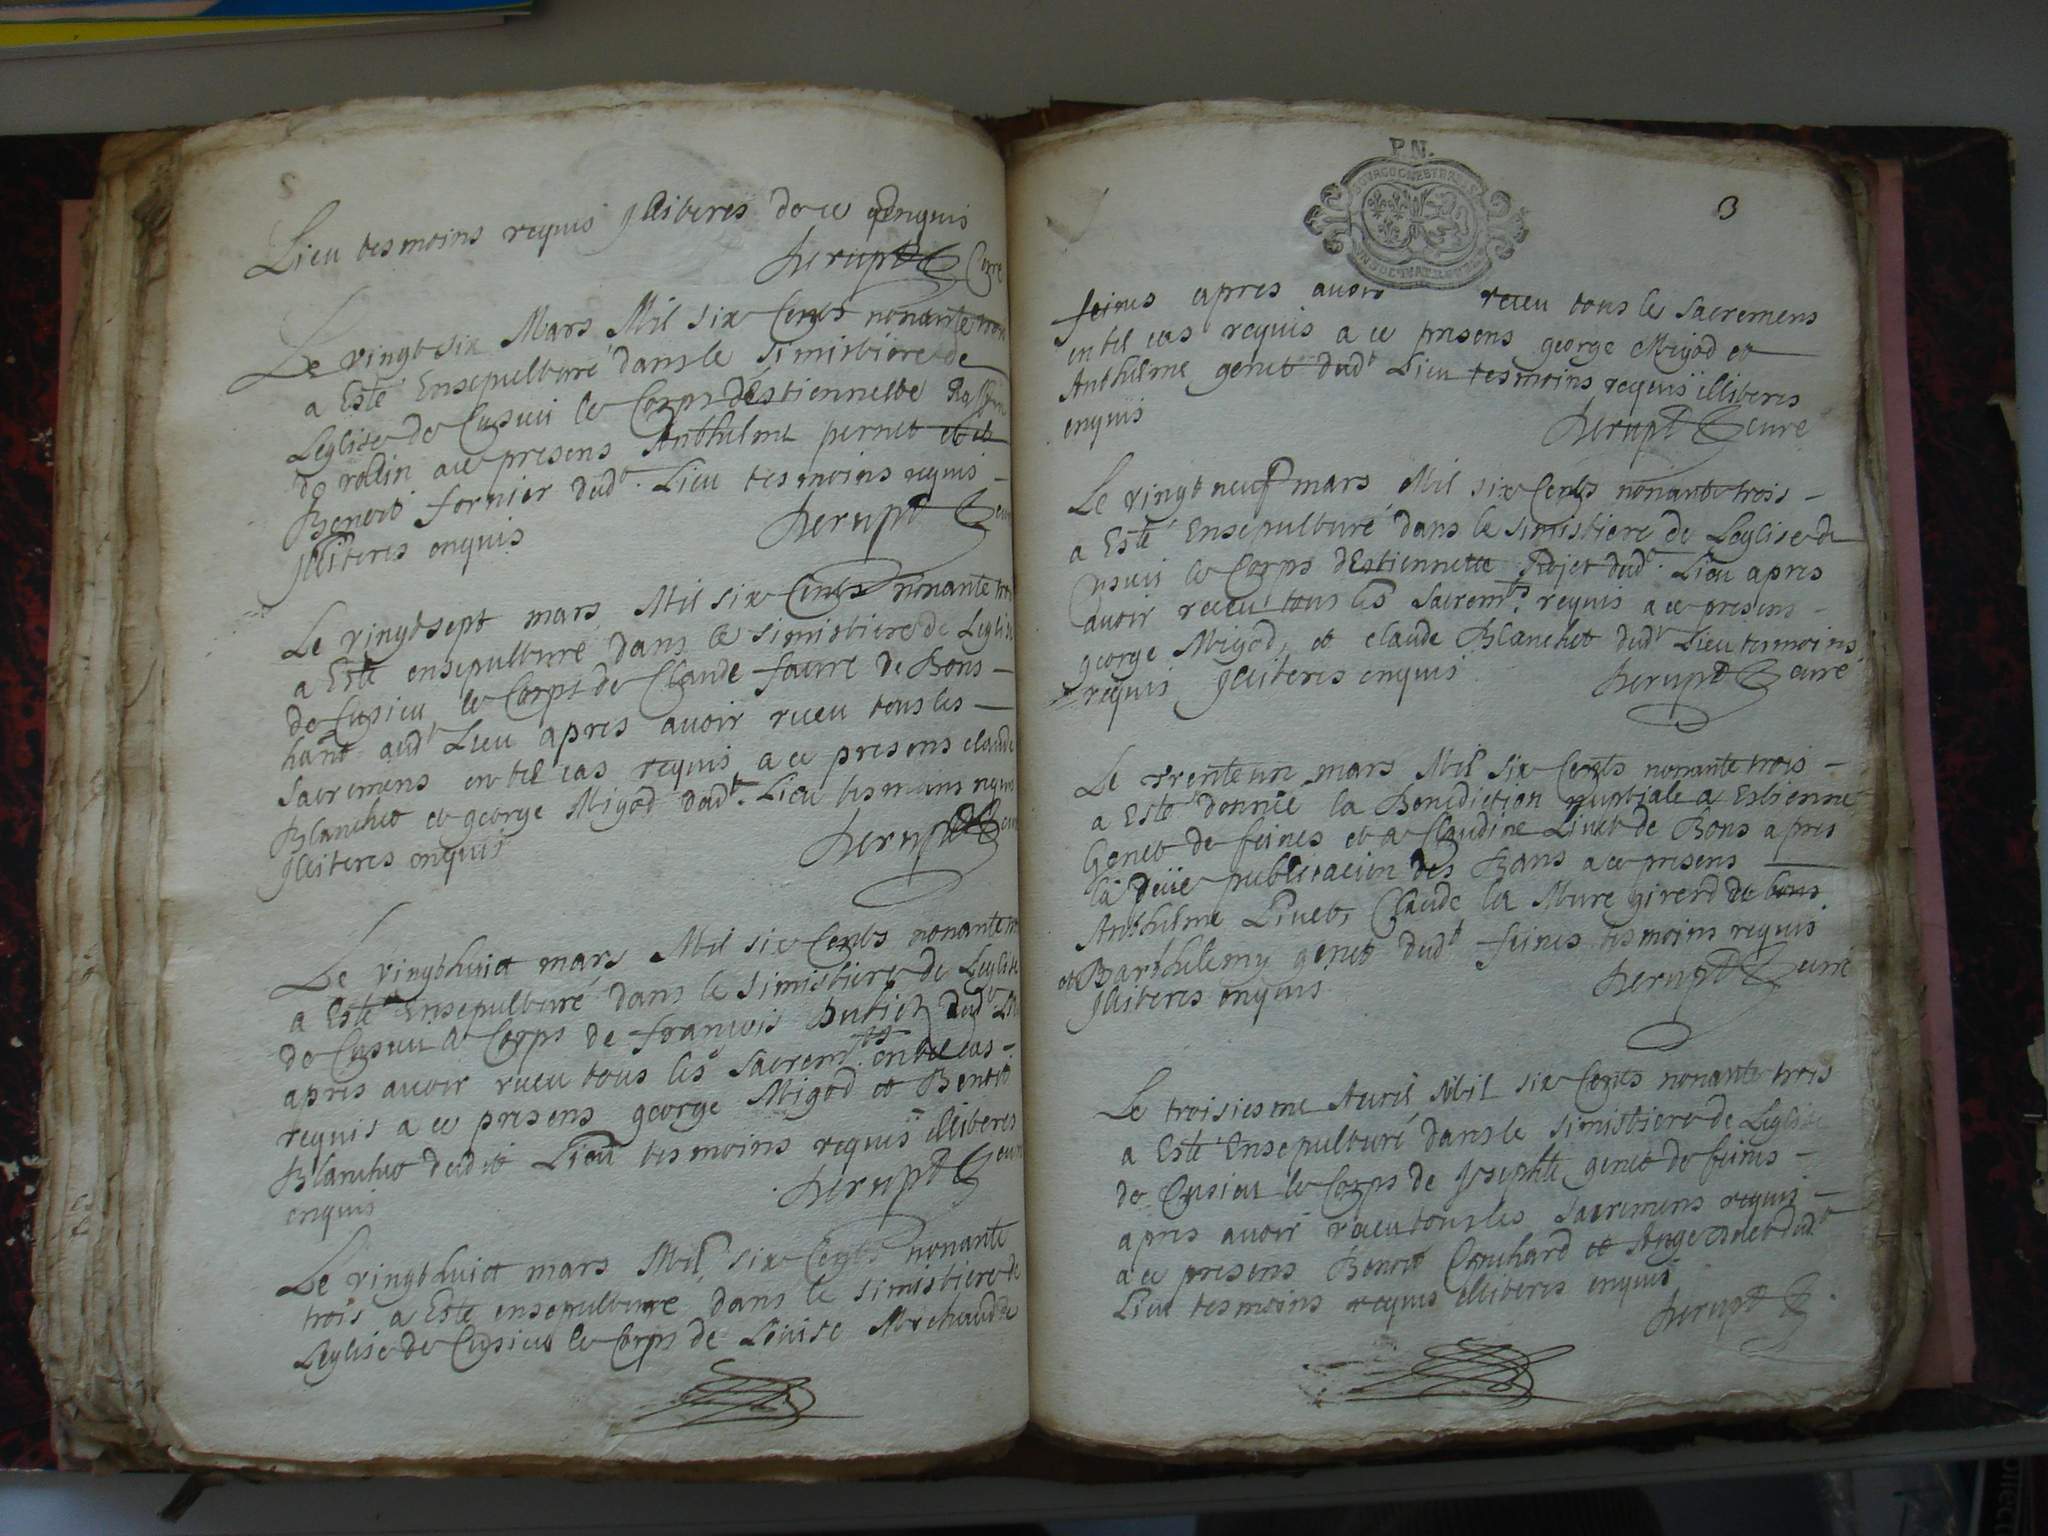 Lieu tesmoins requis Jlliteres de ce enquis
herupt Cure
Le vingt six Mars Mil six Cents nonante trois
a Esté Ensepulturé dans le Simistiere de
Leglise de Cusieu le Corps dEstiennette
de rollin a ce presens Anthelme pernet et
Benoit fornier dudt. Lieu tesmoins requis
Jlliteres enquis herupt cure
Le vingt sept mars Mil six Cents nonante trois
a Esté ensepulturé dans le simistiere de Leglise
de Cusieu le Corps de Claude faure de Bons
hant audt Lieu apres avoir receu tous les
Sacremens en tel cas requis a ce presens claude
Blanchet et george Migod dudt. Lieu tesmoins requis
Jlliteres enquis herupt cure
Le vingt huict mars Mil six Cents nonante trois
a Esté Ensepulturé dans le simistiere de Leglise
de Cusieu le Corps de francois dudt Lieu
apres avoir receu tous les sacremts en tel cas
requis a ce presens george Migod et Benoit
Blanchet dudit Lieu tesmoins requis illiteres
enquis herupt cure
Le vingt huict mars Mil six Cents nonante
trois a Esté ensepulturé dans le simistiere de
Leglise de Cusieu le Corps de Louise Morchaud de
P.N.
3
feines apres avoir receu tous le Sacremens
en tel cas requis a ce presens george Migod et
Anthelme genet dudt Lieu tesmoins requis illiteres
enquis
herupt cure
Le vingt neuf mars Mil six Cents nonante trois
a Esté Ensepulturé dans le simistiere de Leglise de
Cusieu le Corps dEstiennette Rojet dudt. Lieu apres
avoir receu tous les Sacremts. requis a ce presens
george Migod, et claude Blanchet dudt Lieu tesmoins
requis Jlliteres enquis herupt curé
Le trente un mars Mil six Cents nonante trois
a Esté donnée la Benediction nuptiale a Estienne
Genet de feines et a Claudine Livet de Bons apres
la publication des Bans a ce presens
Anthelme Livet, Claude la Mure girerd de bons
et Barthelemy genet dudt feines tesmoins requis
Jlliteres enquis herupt curé
Le troisiesme Avril Mil six Cents nonante trois
a Esté Ensepulturé dans le simistiere de Leglise
de Cusieu le Corps de Josephte genet de feines
apres avoir receu tous les Sacremens requis
a ce presens Benoit Conchard et dudt
Lieu tesmoins requis illiteres enquis
herupt